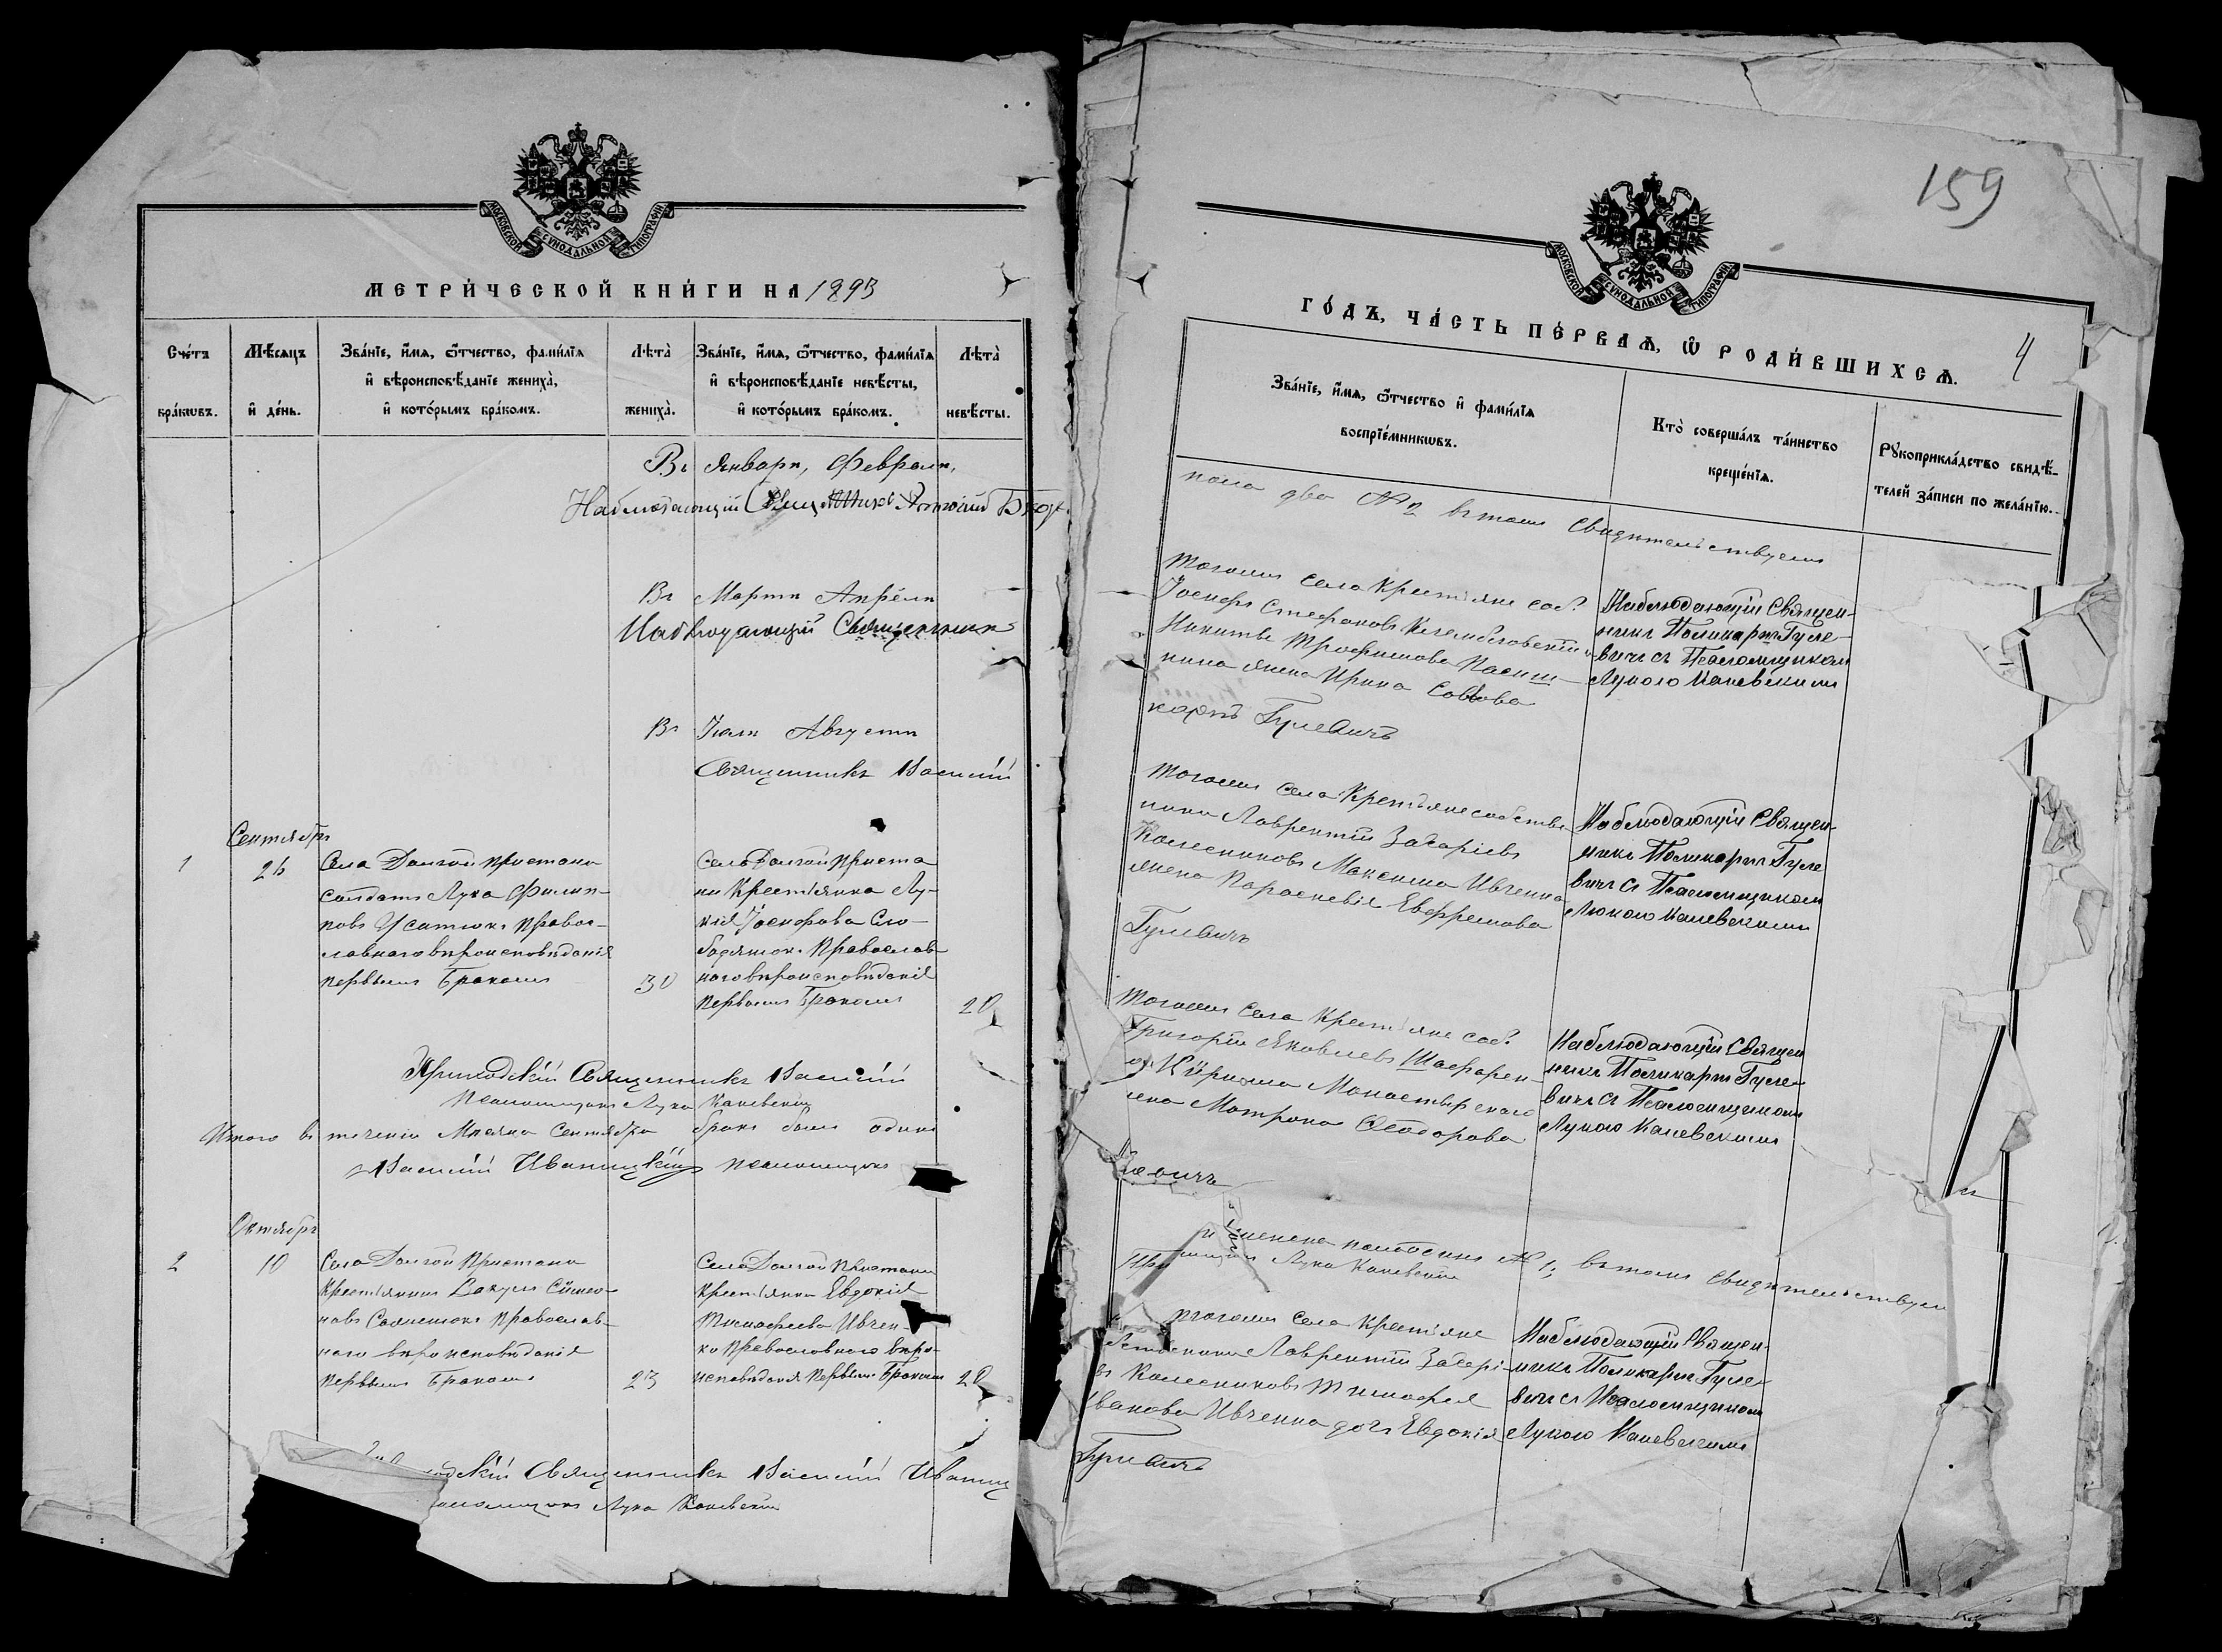 МОСКОВСКОЙ СУНОДАЛЬНОЙ ТИПОГРАФІИ
МЕТРИ́ЧЕСКОЙ КНИ́ГИ НА 1893
Сче́тъ бра́кѡвъ.
Мѣ́сяцъ и҆ де́нь.
Зва́нїе, и҆́мѧ, ѻ҆́тчество, фами́лїѧ
и҆ вѣроисповѣ́данїе жениха̀,
и҆ кото́рымъ бра́комъ.
Лѣта̀ жениха̀.
Зва́нїе, и҆́мѧ, ѻ҆́тчество, фами́лїѧ
и҆ вѣроисповѣ́данїе невѣ́сты,
и҆ кото́рымъ бра́комъ.
Лѣта̀ невѣ́сты.
Въ Январѣ, Февралѣ,
Наблюдающій
Въ Мартѣ Апрѣлѣ
Наблюдающій Священникъ
Въ Іюлѣ Августѣ
Священникъ Василій
Сентябрь
1
26
Села Долгой Пристани
солдатъ Лука Филип-
повъ Усатюкъ Правос-
лавнаго вѣроисповѣданія
первымъ бракомъ
30
Села Долгой Приста
ни Крестьянка Лу-
кія Іосифова Сло-
бодянюк Православ
наго вѣроисповѣданія
первымъ бракомъ
20
Приходскій Священникъ Василій
Псаломщикъ Лука Каневскій
Итого въ теченіи Мѣсяца Сентября бракъ былъ одинъ
Василій Иваницкій псаломщикъ
Октябрь
2
10
Села Долгой Пристани
Крестьянинъ Вакулъ Сѵмео-
новъ Православ-
наго вѣроисповѣданія
первымъ бракомъ
23
Села Долгой Пристани
Крестьянка Евдокія
Тимофеева Ивчен-
ко Православнаго вѣро-
исповѣданія первымъ бракомъ
20
Священникъ Василій Иваниц
Лука Каневскій
159
МОСКОВСКОЙ СУНОДАЛЬНОЙ ТИПОГРАФІИ
ГО́ДЪ, ЧА́СТЬ ПЕ́РВАѦ, Ѽ РОДИ́ВШИХСѦ.
4
Зва́нїе, и҆́мѧ, ѻ҆́тчество и҆ фами́лїѧ
воспрїе́мникѡвъ.
Кто̀ соверша́лъ та́инство
креще́нїѧ.
Рꙋкоприкла́дство свидѣ́-
телей за́писи по жела́нїю.
пола два № 2 въ томъ Свидѣтельствуемъ
тогожъ села Крестьяне соб.
Іосифъ Стефановъ
Никиты Трофимова
жена Ирина Саввова
Наблюдающій Священ-
никъ Поликарпъ Гуле-
вичъ съ Псаломщикомъ
Лукою Каневскимъ
карпъ Гулевичъ
тогожъ села Крестьяне собстве
ники Лаврентій Захаріевъ
Колесниковъ Максима Ивченка
жена Параскевія Ефремова
Наблюдающій Священ-
никъ Поликарпъ Гуле
вичъ съ Псаломщикомъ
Лукою Каневскимъ
Гулевичъ
тогожъ села Крестьяне соб.
Григорій Яковлевъ Шафарен-
Монастырскаго
жена Матрона Ѳеодорова
Наблюдающій Священ
никъ Поликарпъ Гуле-
вичъ съ Псаломщикомъ
Лукою Каневскимъ
левичъ
женска пола одинъ № 1; въ томъ Свидѣтельствуем
Лука Каневскій
тогожъ села Крестьяне
Лаврентій Захарі-
въ Колесниковъ Тимофея
Иванова Ивченка дочь Евдокія
Наблюдающій Священ-
никъ Поликарпъ Гуле-
вичъ съ Псаломщикомъ
Лукою Каневскимъ
Гулевичъ